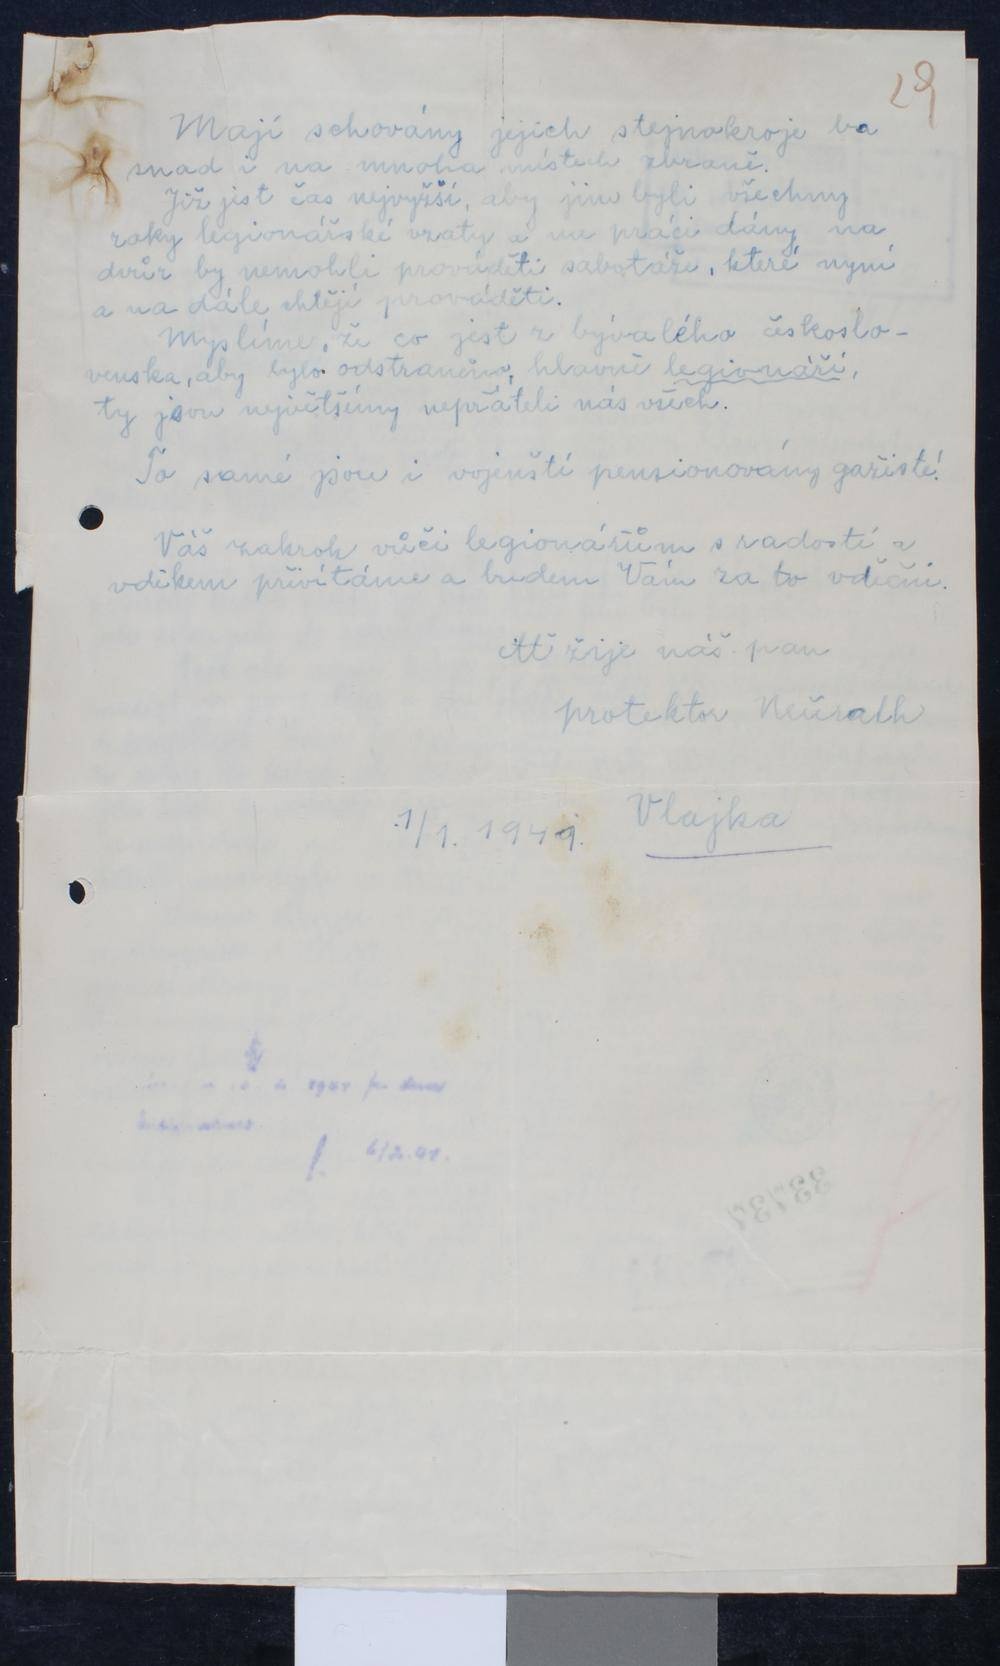 29
Mají schovány jejich stejnokroje ba
snad i na mnoha místech zbraně.
Již jest čas nejvyžší, aby jim byli všechny
roky legionářské vzaty a na práci dány, na
dvůr by nemohli prováděti sabotáže, které nyní
a na dále chtějí prováděti.
Myslíme, že co jest z bývalého českoslo-
venska, aby bylo odstraněno, hlavně legionáři,
ty jsou největšímy nepřáteli nás všech.
To samé jsou i vojenští pensionovány gažisté!
Váš zakrok vůči legionářům s radostí a
vděkem přivítáme a budem Vám za to vděčni.
Ať žije náš pan
protektor Neürath
Vlajka
1/1. 1941.
1941
6/2.41.
33137